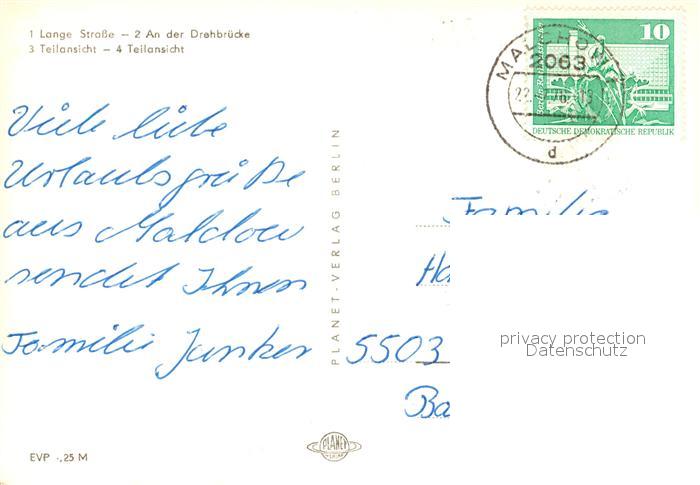 1 Lange Straße – 2 An der Drehbrücke
3 Teilansicht – 4 Teilansicht
10
MALCHOW
2063
22.
d
DEUTSCHE DEMOKRATISCHE REPUBLIK
Viele liebe
Urlaubsgrüße
aus Malchow
sendet Ihnen
Familie Junker
PLANET-VERLAG BERLIN
Familie
5503
Ba
privacy protection
Datenschutz
PLANET
EVP -,25 M